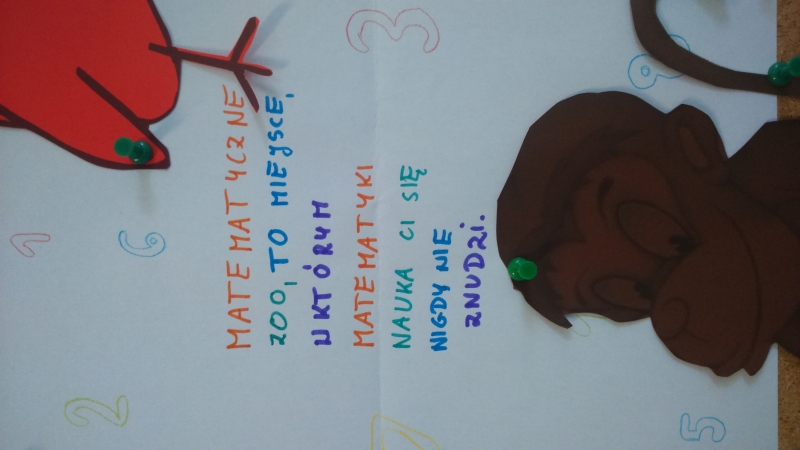 1
2 6
MATEMATYCZNE
ZOO, TO MIEJSCE,
W KTÓRYM
MATEMATYKI
NAUKA CI SIĘ
NIGDY NIE
ZNUDZI.
7 3
5 9